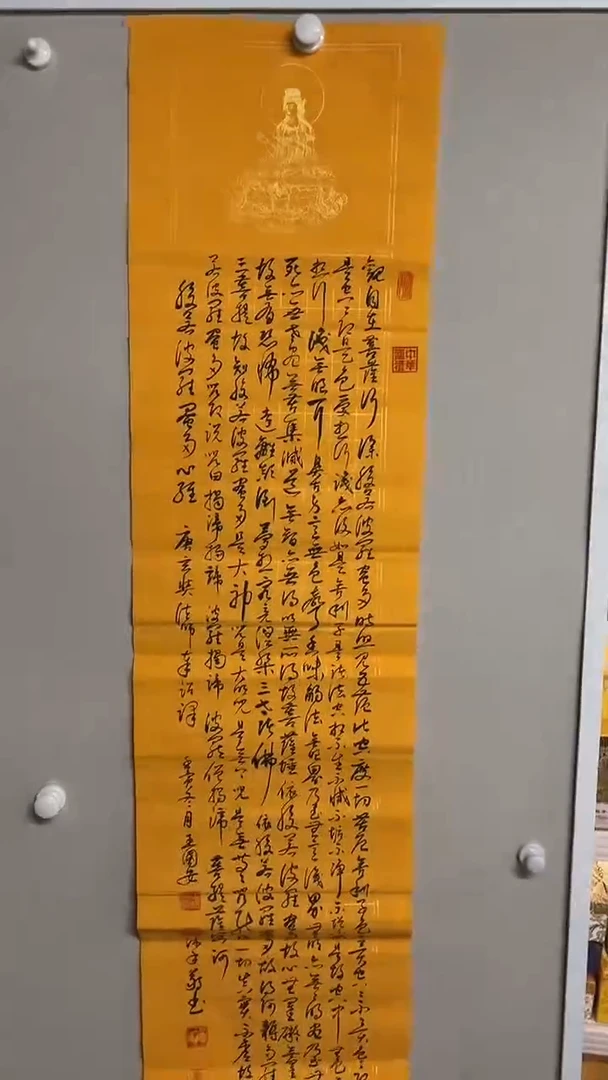 觀自在菩薩行深般若波羅蜜多時照見五蘊皆空度一切苦厄舍利子色不異空空不異色色即
是空空即是色受想行識亦復如是舍利子是諸法空相不生不滅不垢不淨不增不減是故空中無色
想行識無眼耳鼻舌身意無色聲香味觸法無眼界乃至無意識界無無明亦無無明盡乃至無
死亦無老死盡無苦集滅道無智亦無得以無所得故菩提薩埵依般若波羅蜜多故心無罣礙無罣
故無有恐怖遠離顛倒夢想究竟涅槃三世諸佛依般若波羅蜜多故得阿耨多羅
三菩提故知般若波羅蜜多是大神咒是大明咒是無上咒是無等等咒能除一切苦真實不虛故
若波羅蜜多咒即說咒曰揭諦揭諦波羅揭諦波羅僧揭諦菩提薩婆訶
般若波羅蜜多心經 唐玄奘法師奉詔譯 冬月王國安 敬书
中華